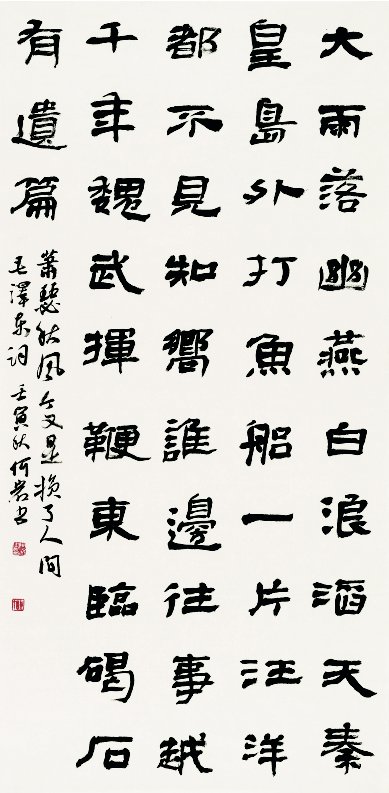 大雨落幽燕白浪滔天秦
皇島外打魚船一片汪洋
都不見知嚮誰邊往事越
千年魏武揮鞭東臨碣石
有遺篇
蕭瑟秋風今又是換了人間
毛澤東詞 壬寅秋何書